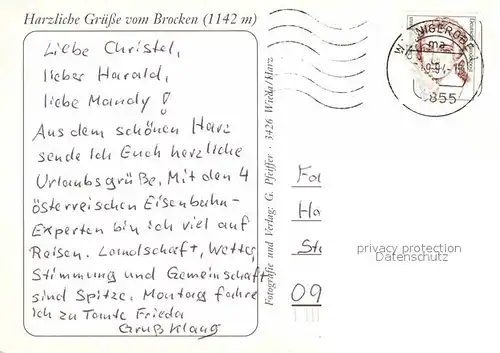 Harzliche Grüße vom Brocken (1142 m)
Liebe Christel,
lieber Harald,
liebe Mandy!
Aus dem schönen Harz
sende ich Euch herzliche
Urlaubsgrüße. Mit den 4
österreischen Eisenbahn-
Experten bin ich viel auf
Reisen. Landschaft, Wetter,
Stimmung und Gemeinschaft
sind Spitze. Montag fahre
ich zu Tante Frieda
Gruß Klaus
Fotografie und Verlag: G. Pfeiffer · 3426 Wieda/Harz
WERNIGERODE 1
ma
3855
Fa
Ha
St
09
privacy protection
Datenschutz